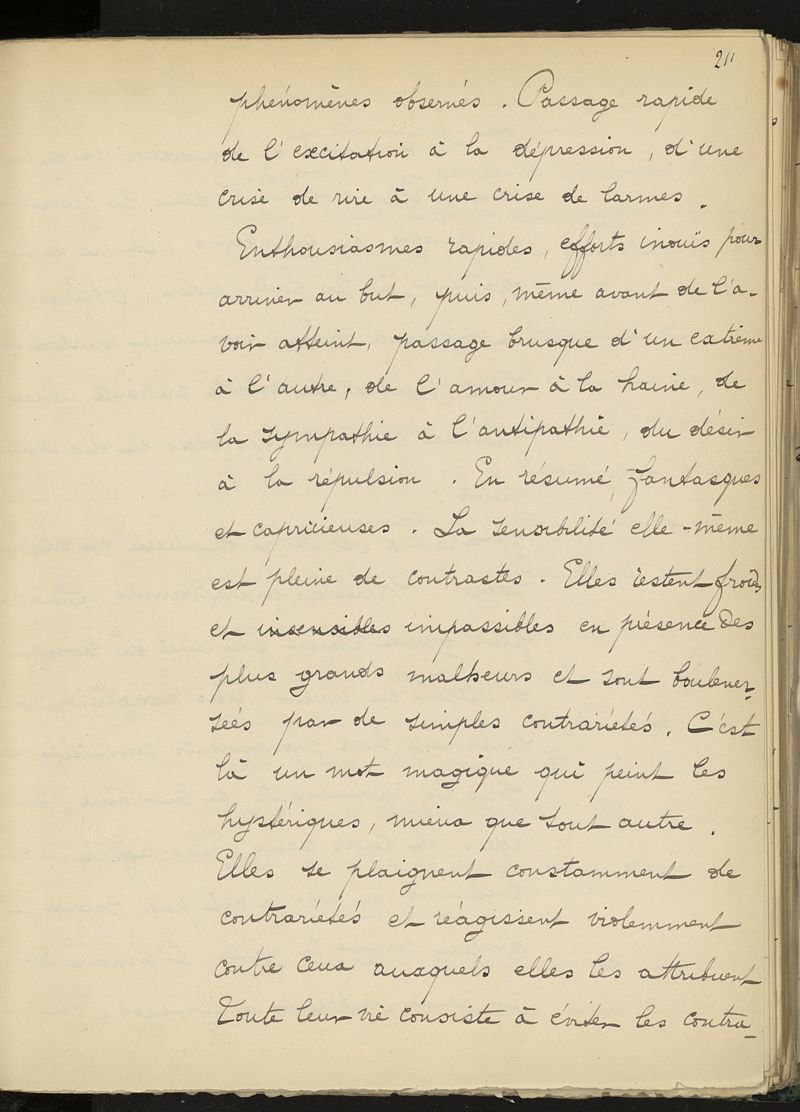 211
phénomènes observés. Passage rapide
de l'excitation à la dépression, d'une
crise de rire à une crise de larmes.
Enthousiasmes rapides, efforts inouïs pour
arriver au but, puis, même avant de l'a-
voir atteint, passage brusque d'un extrême
à l'autre, de l'amour à la haine, de
la sympathie à l'antipathie, du désir
à la répulsion. En résumé, fantasques
et capricieuses. La sensibilité elle-même
est pleine de contrastes. Elles restent froides
et insensibles impassibles en présence des
plus grands malheurs et sont boulever-
seés par de simples contrariétés. C'est
là un mot magique qui peint les
hystériques, mieux que tout autre.
Elles se plaignent constamment de
contrariétés et réagissent violemment
contre ceux auxquels elles les attribuent
Toute leur vie consiste à éviter les contra-